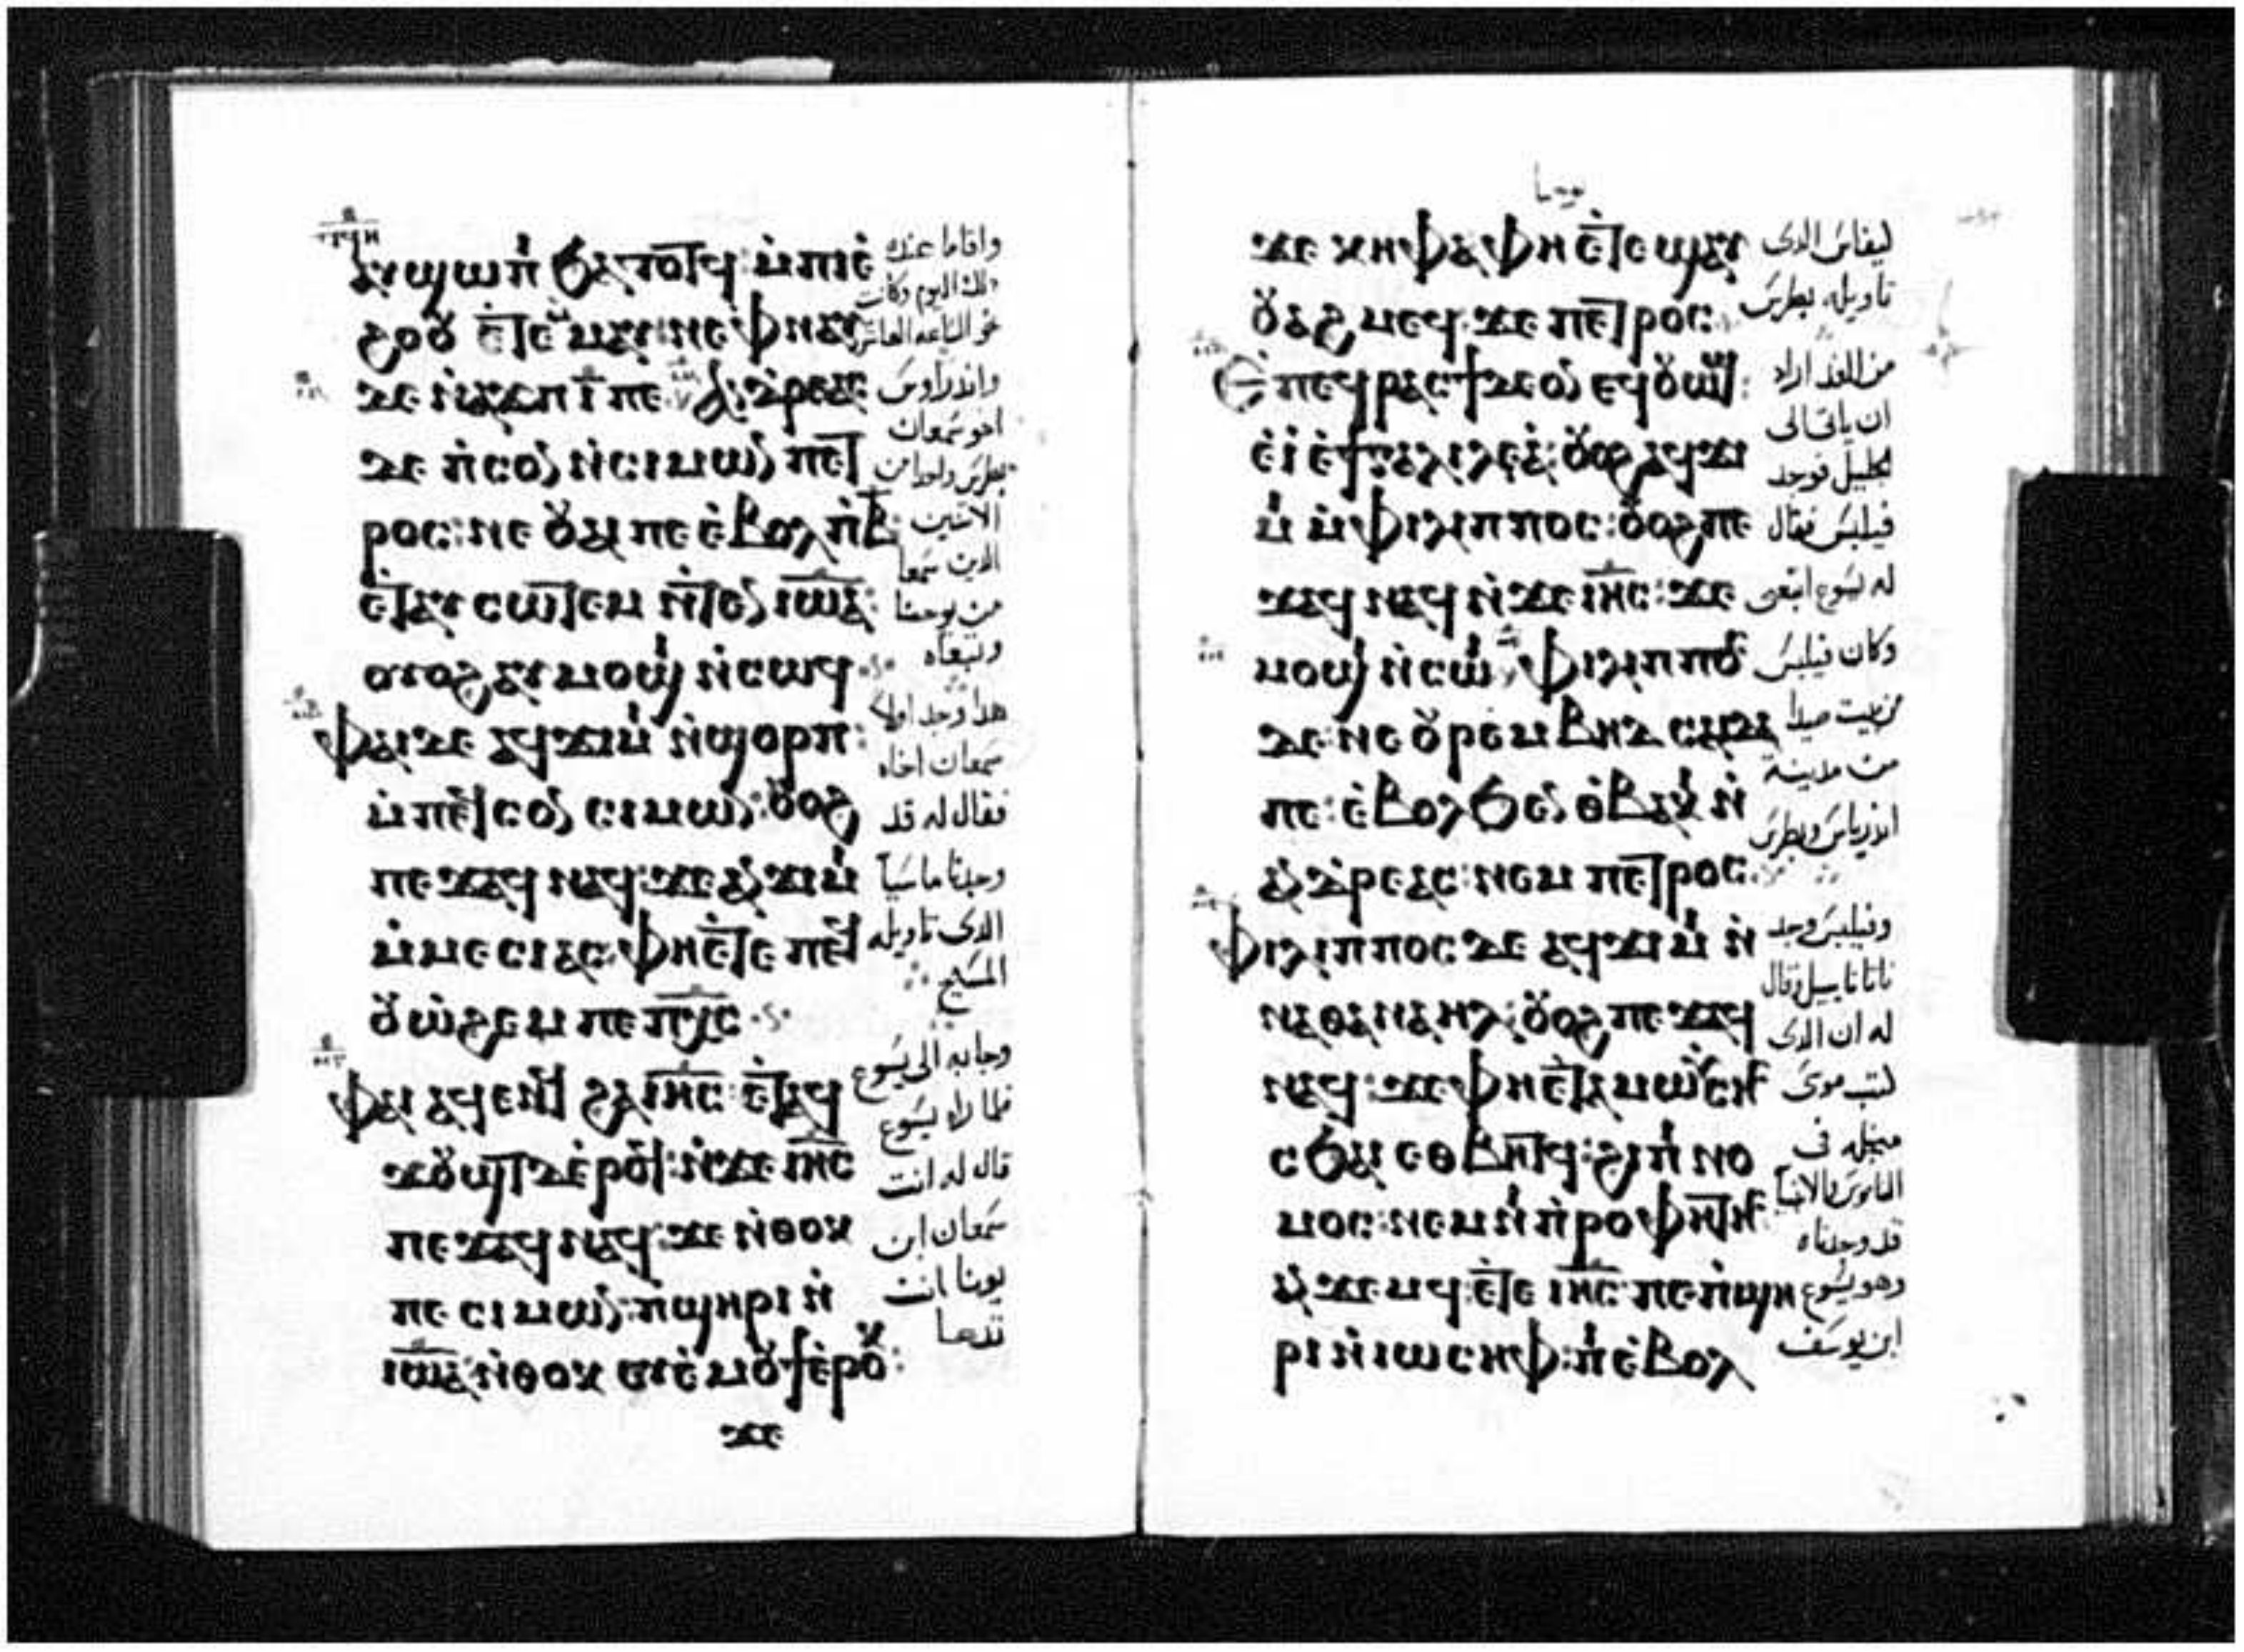 ⲁⲩϣⲱⲡⲓ ϧⲁⲧⲟⲧϥ: ⲙ̀ⲡⲓⲉ̀
ϩⲟⲟⲩ ⲉ̀ⲧⲉⲙⲙⲁⲩ: ⲛⲉ ⲫⲛⲁⲩ
ⲇⲉ ⲛ̀ⲁϫⲡ ⲓ̅ ⲡⲉ ⲁⲛⲇⲣⲉⲁⲥ
ⲇⲉ ⲡ̀ⲥⲟⲛ ⲛ̀ⲥⲓⲙⲱⲛ ⲡⲉⲧ
ⲣⲟⲥ: ⲛⲉ ⲟⲩⲁⲓ ⲡⲉ ⲉ̀ⲃⲟⲗ ⲡ̀ⲃ̅
ⲉ̀ⲧⲁⲩ ⲥⲱⲧⲉⲙ ⲛ̀ⲧⲉⲛ ⲓⲱ̅ⲁ̅:
ⲟⲩⲟϩ ⲁⲩⲙⲟϣⲓ ⲛ̀ⲥⲱϥ
ⲫⲁⲓ ⲇⲉ ⲁϥϫⲓⲙⲓ ⲛ̀ϣⲟⲣⲡ:
ⲙ̀ⲡⲉϥⲥⲟⲛ ⲥⲓⲙⲱⲛ: ⲟⲩⲟϩ
ⲡⲉϫⲁϥ ⲛⲁϥ: ϫⲉ ⲁⲛϫⲓⲙⲓ
ⲙ̀ⲙⲉⲥⲓⲁⲥ: ⲫⲏⲉ̀ⲧⲉ ⲡⲉϥ
ⲟⲩⲱϩⲉⲙ ⲡⲉ ⲡ̅ⲭ̅ⲥ̅
ⲫⲁⲓ ⲁϥⲉⲛϥ ϩⲁ ⲓ̅ⲏ̅ⲥ̅: ⲉ̀ⲧⲁϥ
ϫⲟⲩϣⲧ ⲇⲉ ⲉ̀ⲣⲟϥ: ⲛ̀ϫⲉ ⲓ̅ⲏ̅ⲥ̅
ⲡⲉϫⲁϥ ⲛⲁϥ: ϫⲉ ⲛ̀ⲑⲟⲕ
ⲡⲉ ⲥⲓⲙⲱⲛ: ⲡ̀ϣⲏⲣⲓ ⲛ̀
ⲓⲱ̅ⲁ̅: ⲛ̀ⲑⲟⲕ ⲉⲩⲉ̀ⲙⲟⲩϯ ⲉ̀ⲣⲟⲕ:
ϫⲉ
واقاما عنده
ذلك اليوم وكانت
نحو الساعه العاشره
واندراوس
اخو سمعان
بطرس واحد من
الاثنين
الذين سمعا
من يوحنا
وتبعاه
هذا وجد اولا
سمعان اخاه
فقال له قد
وجدنا ماسيا
الدى تاويله
المسيح
وجا به الى يسوع
فلما راه يسوع
قال له انت
سمعان ابن
يونا انت
تدعا
يوحنا
ϫⲉ ⲕⲏⲫⲁ ⲫⲏ ⲉ̀ⲧⲉ ϣⲁⲩ
ⲟⲩⲁϩⲙⲉϥ: ϫⲉ ⲡⲉⲧⲣⲟⲥ:
ⲉ̀ⲡⲉϥⲣⲁⲥϯ ⲇⲉ ⲟⲛ ⲉϥⲟⲩⲱϣ:
ⲉ̀ⲓ̀ ⲉ̀ϯⲅⲁⲗⲓⲗⲉⲁ̀: ⲟⲩⲟϩ ⲁϥϫⲓ
ⲙⲓ ⲙ̀ⲫⲓⲗⲓⲡⲡⲟⲥ: ⲟⲩⲟϩ ⲡⲉ
ϫⲁϥ ⲛⲁϥ ⲛ̀ϫⲉ ⲓ̅ⲏ̅ⲥ̅: ϫⲉ
ⲙⲟϣⲓ ⲛ̀ⲥⲱⲓ ⲫⲓⲗⲓⲡⲡⲟⲥ
ⲇⲉ: ⲛⲉ ⲟⲩⲣⲉⲙ ⲃⲏⲇⲥⲁⲓⲇⲁ
ⲡⲉ: ⲉ̀ⲃⲟⲗ ϧⲉⲛ ⲑ̀ⲃⲁⲕⲓ ⲛ̀
ⲁⲛⲇⲣⲉⲁⲥ: ⲛⲉⲙ ⲡⲉⲧⲣⲟⲥ
ⲫⲓⲗⲓⲡⲡⲟⲥ ⲇⲉ ⲁϥϫⲓⲙⲓ ⲛ̀
ⲛⲁⲑⲁⲛⲁⲏⲗ: ⲟⲩⲟϩ ⲡⲉϫⲁϥ
ⲛⲁϥ: ϫⲉ ⲫⲏⲉ̀ⲧⲁ ⲙⲱⲩⲥⲏⲥ
ⲥϧⲁⲓ ⲉⲑⲃⲏⲧϥ: ϩⲓ ⲡⲓⲛⲟ
ⲙⲟⲥ: ⲛⲉⲙ ⲛⲓⲡ̀ⲣⲟⲫⲏⲧⲏⲥ
ⲁⲛϫⲉⲙϥ: ⲉ̀ⲧⲉ ⲓ̅ⲏ̅ⲥ̅ ⲡⲉ ⲡ̀ϣⲏ
ⲣⲓ ⲛ̀ⲓⲱⲥⲏⲫ: ⲡⲓⲉ̀ⲃⲟⲗ
ليفاس الدى
تاويله بطرس
من الغد اراد
ان ياتى الى
الجليل فوجد
فيلبس فقال
له يسوع اتبعنى
وكان فيلبس
من بيت صيدا
من مدينة
اندرياس وبطرس
وفيلبس وجد
ناتاناييل وقال
له ان الدى
كتب موسى
من اجله فى
الناموس والانبيا
قد وجدناه
وهو يسوع
ابن يوسف